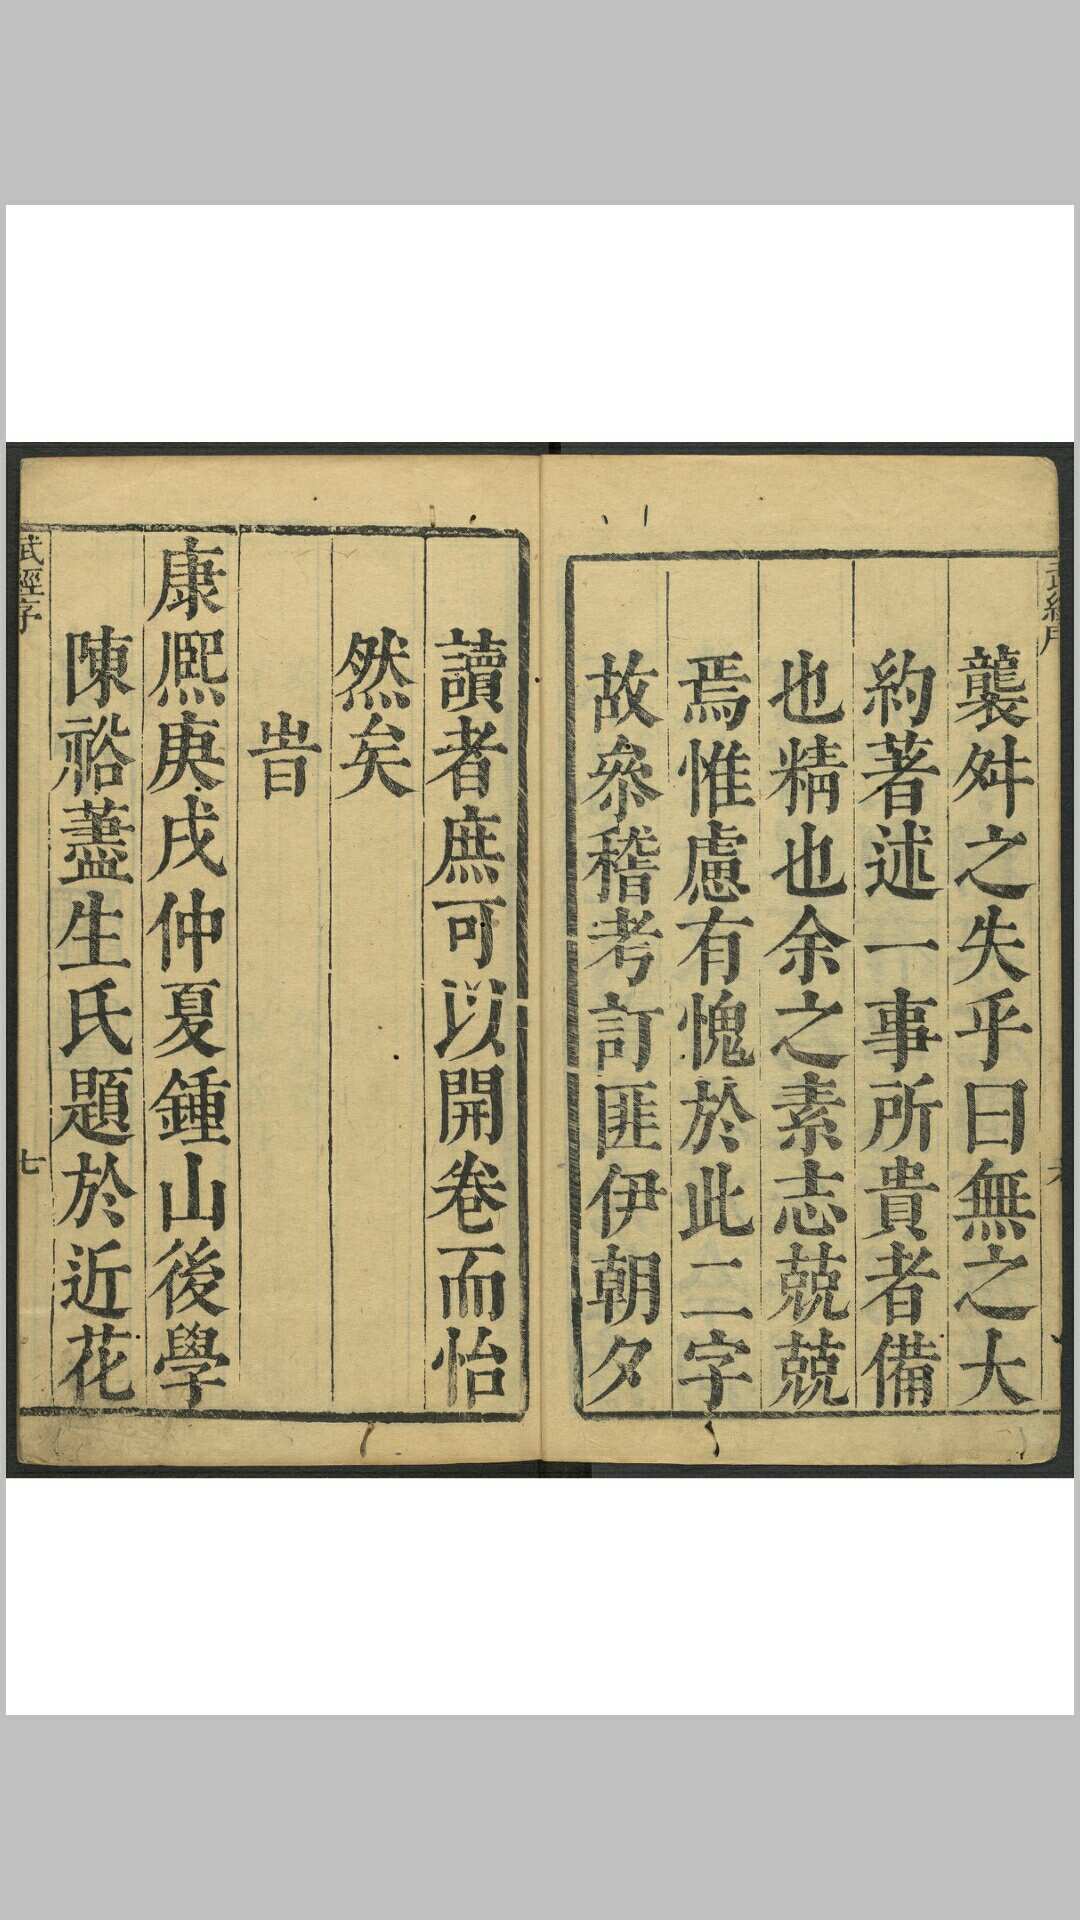 襲舛之失乎曰無之大
約著述一事所貴者備
也精也余之素志兢兢
焉惟慮有愧於此二字
故叅稽考訂匪伊朝夕
讀者庶可以開卷而怡
然矣
旹
康熈庚戌仲夏鍾山後學
陳裕藎生氏題於近花
武經序
七